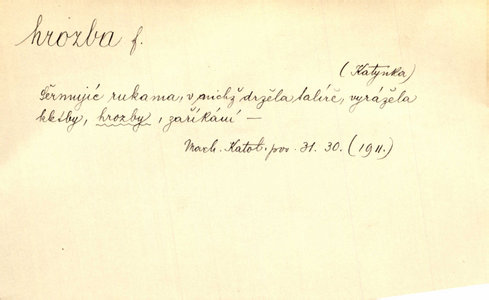 hrozba f.
(Katynka)
Šermujíc rukama, v nichž držela talíře, vyrážela
kletby, hrozby, zaříkání —
Mach. Katol. pov. 31. 30. (1911.)